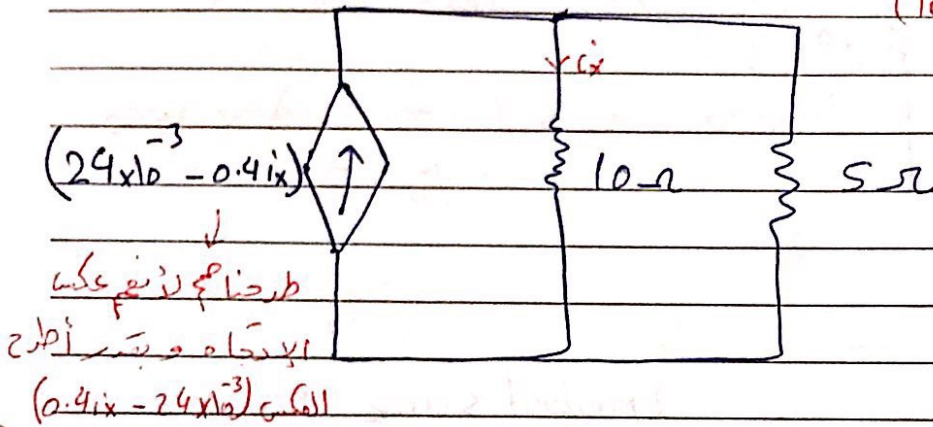 (10
ix
(24x10⁻³ - 0.4ix)
10 Ω
5 Ω
طرحناهم لأنهم عكس
الإتجاه و بقدر أطرح
العكس (0.4ix - 24x10⁻³)